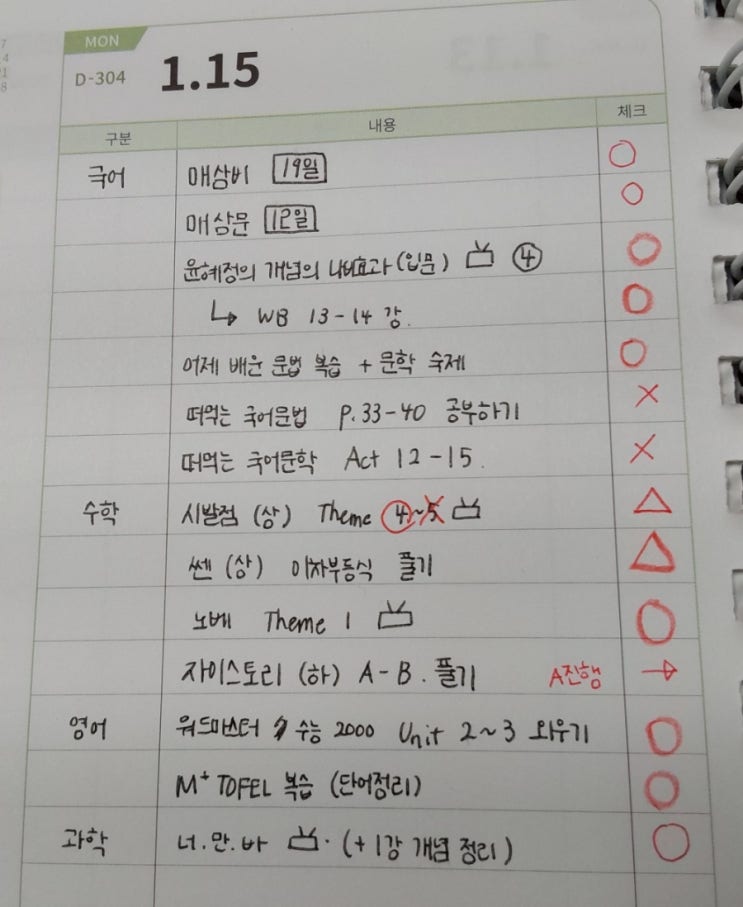 MON
D-304 1.15
구분 내용 체크
국어 매삼비 19일 ○
매삼문 12일 ○
윤혜정의 개념의 나비효과(입문) ④ ○
↳ WB 13-14 강. ○
어제 배운 문법 복습 + 문학 숙제 ○
떠먹는 국어문법 P.33-40 공부하기 ×
떠먹는 국어문학 Act 12-15. ×
수학 시발점 (상) Theme 4~5 △
쎈 (상) 이차부등식 풀기 △
노베 Theme 1 ○
자이스토리 (하) A-B. 풀기 A진행 →
영어 워드마스터 수능 2000 Unit 2~3 외우기 ○
M⁺ TOFEL 복습 (단어정리) ○
과학 너.만.바 . (+1강 개념 정리) ○